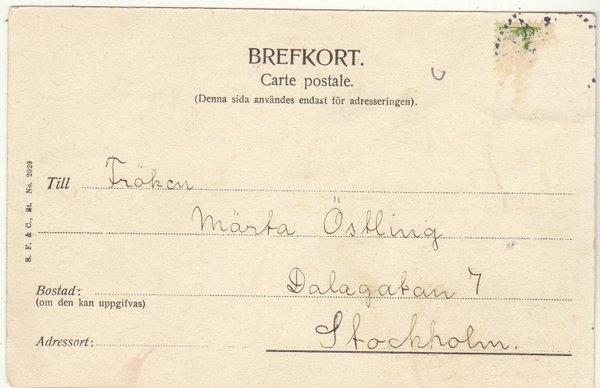 BREFKORT.
Carte postale.
(Denna sida användes endast för adresseringen).
B. F. & C., St. No. 2020
Till Fröken
Märta Östling
Bostad: Dalagatan 7
(om den kan uppgifvas)
Adressort: Stockholm.